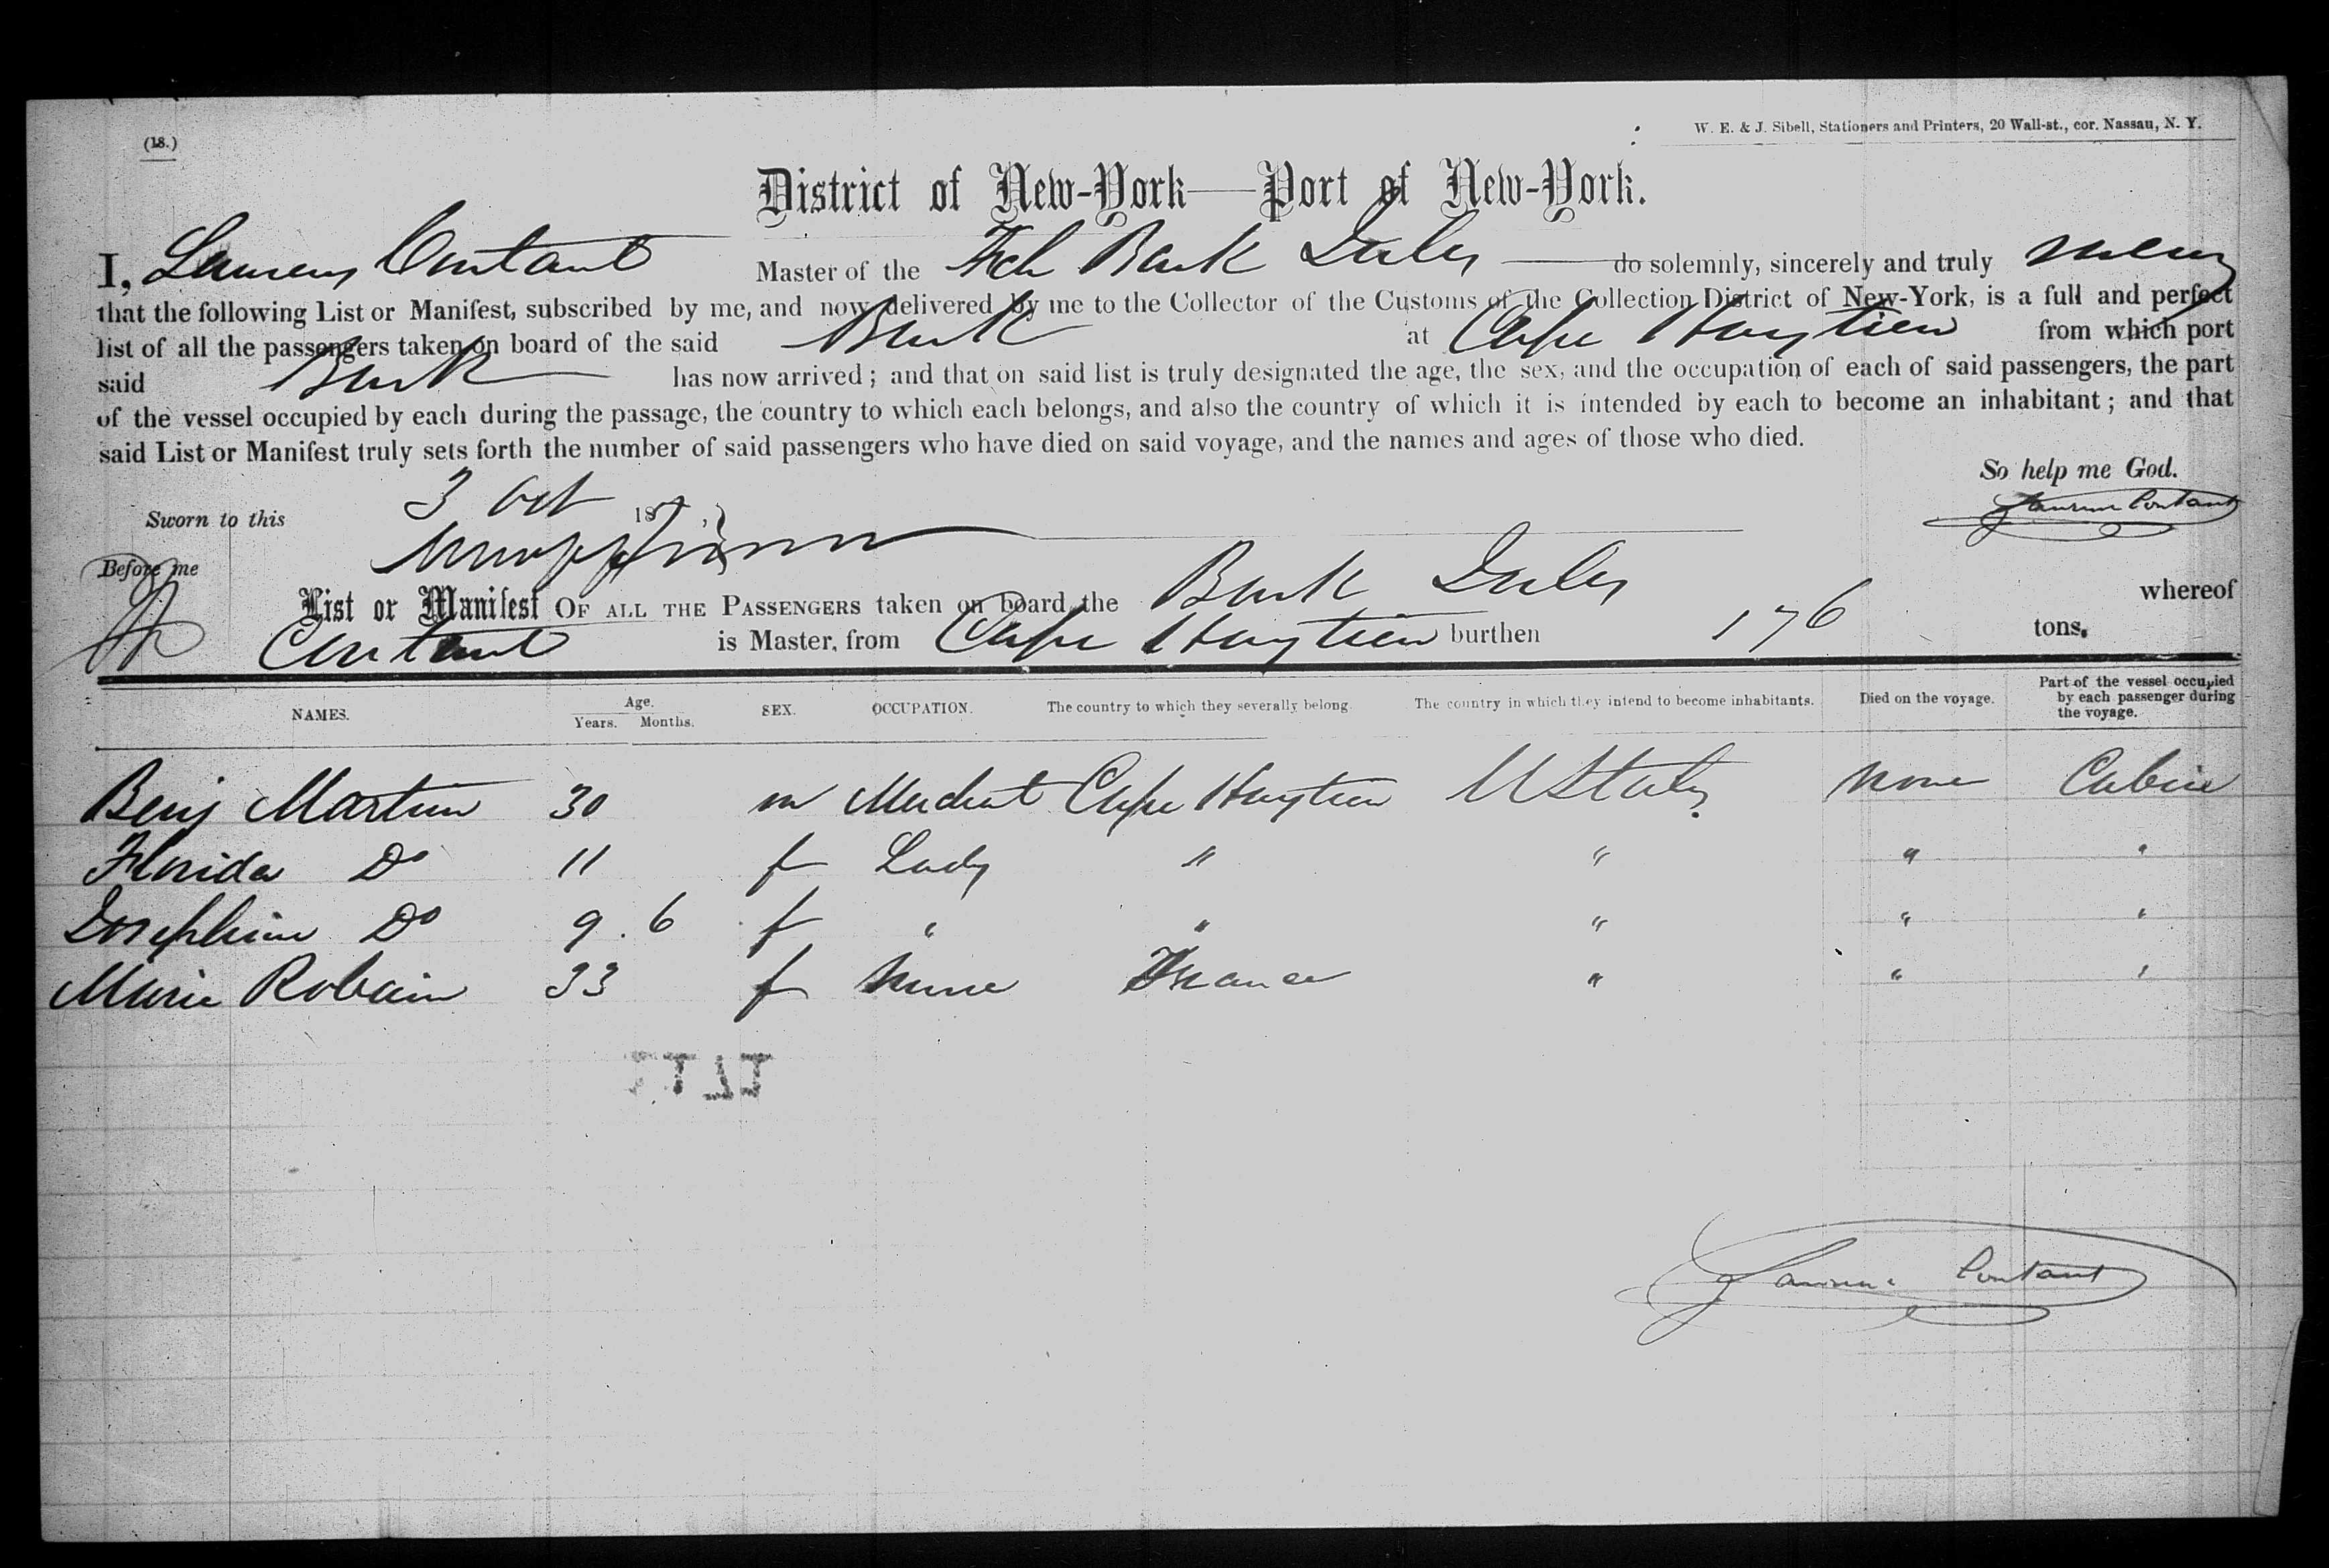 (18.)
W. E. & J. Sibell, Stationers and Printers, 20 Wall-st., cor. Nassau, N. Y.
District of New-York—Port of New-York.
I, Contant Master of the Fch Bark Jules do solemnly, sincerely and truly swear
that the following List or Manifest, subscribed by me, and now delivered by me to the Collector of the Customs of the Collection District of New-York, is a full and perfect
list of all the passengers taken on board of the said Bark at Cape Haytien from which port
said Bark has now arrived; and that on said list is truly designated the age, the sex, and the occupation of each of said passengers, the part
of the vessel occupied by each during the passage, the country to which each belongs, and also the country of which it is intended by each to become an inhabitant; and that
said List or Manifest truly sets forth the number of said passengers who have died on said voyage, and the names and ages of those who died.
So help me God.
Sworn to this 3 Oct 187
Contant
Before me
List or Manifest OF ALL THE PASSENGERS taken on board the Bark Jules whereof
Contant is Master, from Cape Haytien burthen 176 tons.
NAMES. Age. Years. Months. SEX. OCCUPATION. The country to which they severally belong. The country in which they intend to become inhabitants. Died on the voyage. Part of the vessel occupied by each passenger during the voyage.
Benj Martin 30 m Merchant Cape Haytien U States none Cabin
Florida Do 11 f Lady " " " "
Josephine Do 9 . 6 f " " " " "
Marie Robain 33 f Nurse France " " "
Contant